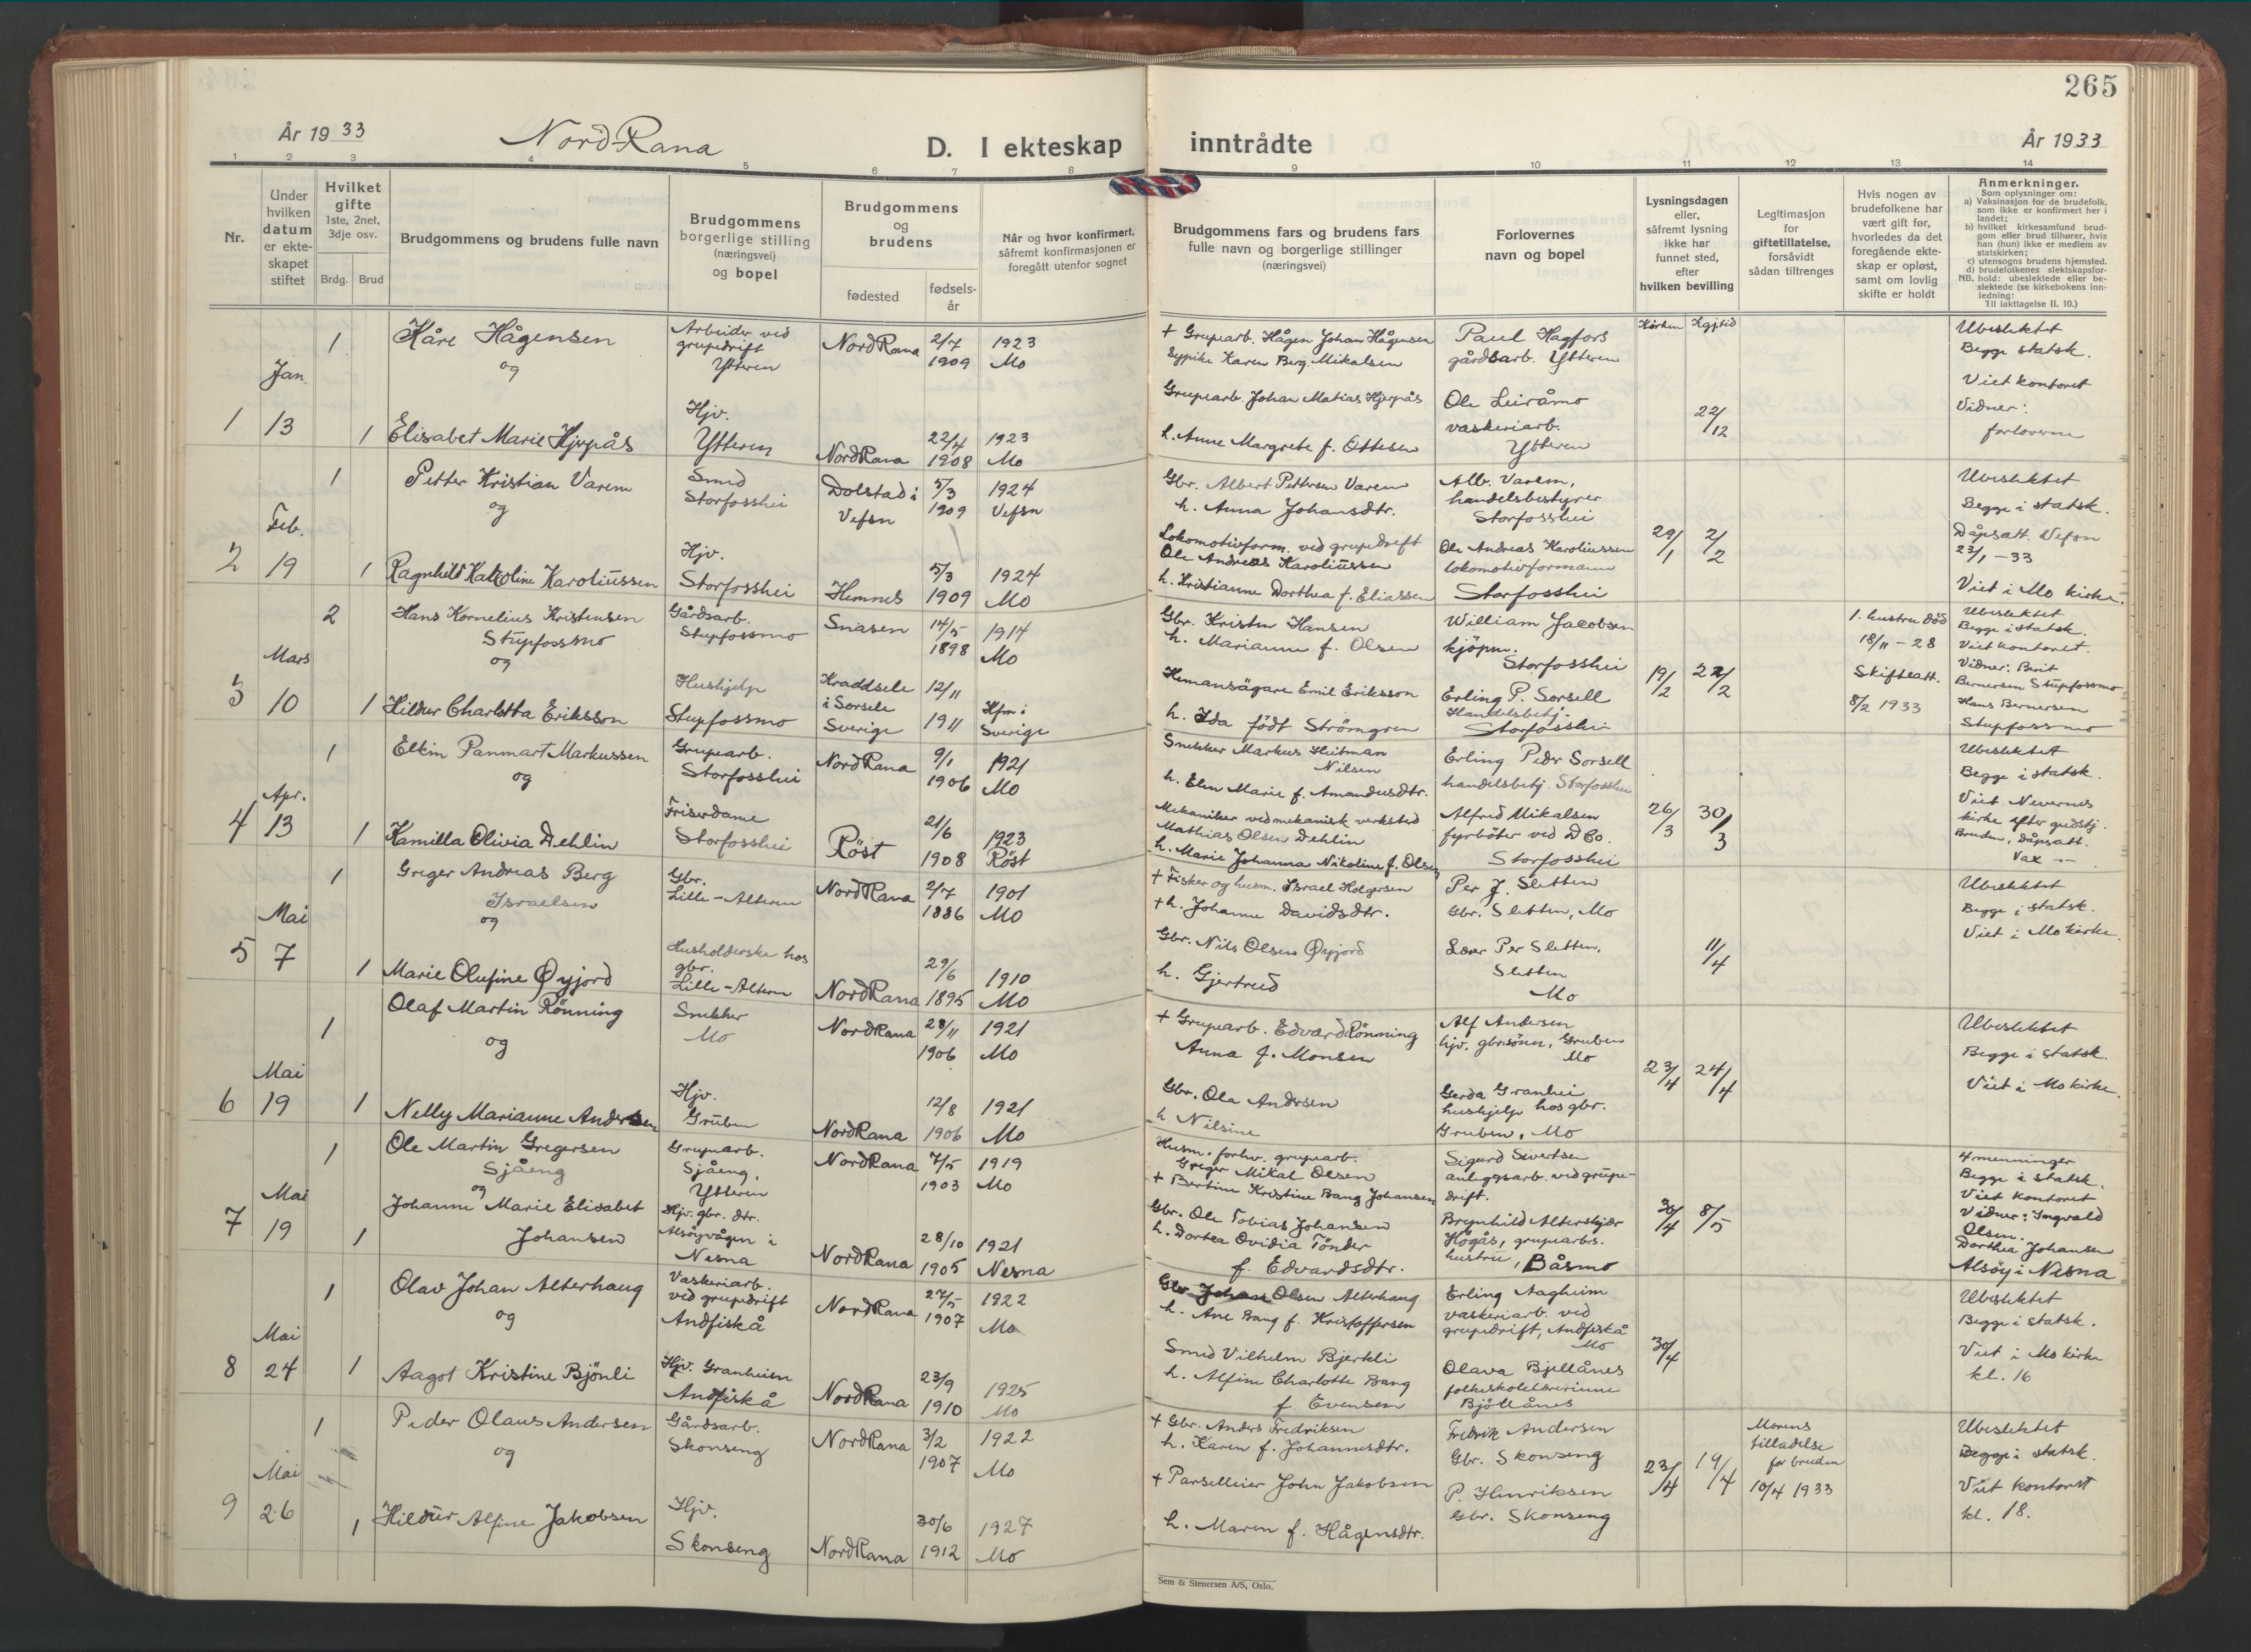 265
År 1933
Nord-Rana
D. I ekteskap inntrådte
År 1933
1 2 3 4 5 6 7 8 9 10 11 12 13 14
Nr.
Under
hvilken
datum
er ekte-
skapet
stiftet
Hvilket
gifte
1ste, 2net,
3dje osv.
Brdg. Brud
Brudgommens og brudens fulle navn
Brudgommens
borgerlige stilling
(næringsvei)
og bopel
Brudgommens
og
brudens
fødested
fødsels-
år
Når og hvor konfirmert,
såfremt konfirmasjonen er
foregått utenfor sognet
Brudgommens fars og brudens fars
fulle navn og borgerlige stillinger
(næringsvei)
Forlovernes
navn og bopel
Lysningsdagen
eller,
såfremt lysning
ikke har
funnet sted,
efter
hvilken bevilling
Legitimasjon
for
giftetillatelse,
forsåvidt
sådan tiltrenges
Hvis nogen av
brudefolkene har
vært gift før,
hvorledes da det
foregående ekte-
skap er opløst,
samt om lovlig
skifte er holdt
Anmerkninger.
Som oplysninger om:
a) Vaksinasjon for de brudefolk,
som ikke er konfirmert her i
landet;
b) hvilket kirkesamfund brud-
gom eller brud tilhører, hvis
han (hun) ikke er medlem av
statskirken;
c) utensogns brudens hjemsted.
d) brudefolkenes slektskapsfor-
NB. hold: ubeslektede eller be-
slektede (se kirkebokens inn-
ledning:
Til iakttagelse II. 10.)
1
Jan.
13
1
Kåre Hågensen
og
Arbeider ved
grupedrift
Ytteren
Nord Rana
2/7
1909
1923
Mo
+ Grupearb. Hågen Johan Hågensen
Sypike Karen Berg. Mikalsen
Paul Hagfors
gårdsarb. Ytteren
Kirken
Ubeslektet
Begge statsk.
Viet kontoret
Vidner:
forloverne
1
Elisabet Marie Hjerpås
Hjv.
Ytteren
Nord Rana
22/4
1908
1923
Mo
Grupearb. Johan Matias Hjerpås
h. Anne Margrete f. Ottesen
Ole Leiråmo
vaskeriarb.
Ytteren
22/12
2
Feb.
19
1
Petter Kristian Varem
og
Smed
Storfosshei
Dolstad i
Vefsn
5/3
1909
1924
Vefsn
Gbr. Albert Pettersen Varem
h. Anna Johansdtr.
Alb. Varem,
handelsbestyrer
Storfosshei
29/1 2/2
Ubeslektet
Begge i statsk.
Dåpsatt. Vefsn
23/1 - 33
Viet i Mo kirke.
1
Ragnhild Karoline Karoliussen
Hjv.
Storfosshei
Hemnes
5/3
1909
1924
Mo
Lokomotivform. ved grupedrift
Ole Andreas Karoliussen
h. Kristianne Dorthea f. Eliassen
Ole Andreas Karoliussen
lokomotivformann
Storfosshei
3
Mars
10
2
Hans Kornelius Kristensen
Stupfossmo
og
Gårdsarb.
Stupfossmo
Snasen
14/5
1898
1914
Mo
Gbr. Kristen Hansen
h. Marianne f. Olsen
William Jacobsen
kjöpm.
Storfosshei
19/2 22/2
1. hustru död
18/11 - 28
Skifteatt.
8/2 1933
Ubeslektet
Begge i statsk.
Viet kontoret.
Vidner: Berit
Bernersen Stupfossmo
Hans Bernersen
Stupfossmo
1
Hildur Charlotta Eriksson
Hushjelp
Stupfossmo
Kraddsele
i Sorsele
Sverige
12/11
1911
Kfm i
Sverige
Hemansägare Emil Eriksson
h. Ida født Strömgren
Erling P. Sorsell
Handelsbetj.
Storfosshei
4
Apr.
13
1
Elkin Panmart Markussen
og
Grupearb.
Storfosshei
Nord Rana
9/1
1906
1921
Mo
Snekker Markus Heitman
Nilsen
h. Elen Marie f. Amandusdtr.
Erling Peder Sorsell
handelsbetj. Storfosshei
26/3 30/3
Ubeslektet
Begge i statsk.
Viet Nevernes
kirke efter gudstj.
Bruden, dåpsatt.
Vax
1
Kamilla Olivia Dehlin
Friserdame
Storfosshei
Röst
21/6
1908
1923
Röst
Mekaniker ved mekanisk verksted
Mathias Olsen Dehlin
h. Marie Johanna Nikoline f. Olsen
Alfred Mikalsen
fyrböter ved D Co.
Storfosshei
5
Mai
7
1
Greger Andreas Berg
Israelsen
og
Gbr.
Lille-Alteren
Nord Rana
2/7
1886
1901
Mo
+ Fisker og husm. Israel Holgersen
+ h. Johanne Davidsdtr.
Per J. Sletten
Gbr. Sletten, Mo
11/4
Ubeslektet
Begge i statsk.
Viet i Mo kirke.
1
Marie Olufine Øyjord
Husholderske hos
gbr.
Lille-Alteren
Nord Rana
29/6
1895
1910
Mo
Gbr. Nils Olsen Øyjord
h. Gjertrud
Lærer Per Sletten,
Sletten
Mo
6
Mai
19
1
Olaf Martin Rönning
og
Snekker
Mo
Nord Rana
28/11
1906
1921
Mo
+ Grupearb. Edvard Rönning
Anna f. Monsen
Alf Andersen
hjv. gbrsönn, Gruben
Mo
23/4 24/4
Ubeslektet
Begge i statsk.
Viet i Mo kirke.
1
Nelly Marianne Andersen
Hjv.
Gruben
Nord Rana
12/8
1906
1921
Mo
Gbr. Ola Andersen
h Nilsine
Gerda Granhei
hushjelp hos gbr.
Gruben, Mo
7
Mai
19
1
Ole Martin Gregersen
Sjåeng
og
Grupearb.
Sjåeng,
Ytteren
Nord Rana
7/5
1903
1919
Mo
Husm. forhv. grupearb.
Greger Mikal Olsen
+ Bertine Kristine Bang Johansen
Sigurd Sivertsen
anleggsarb. ved grupe-
drift.
30/4 8/5
4menninger
Begge i statsk.
Viet kontoret
Vidner: Ingvald
Olsen.
Dorthea Johansen
Alsöy i Nesna
1
Johanne Marie Elisabet
Johansen
Hjv. gbr. dtr.
Alsöyvågen i
Nesna
Nord Rana
28/10
1905
1921
Nesna
Gbr. Ole Tobias Johansen
h. Dortea Ovidia Tönder
f. Edvardsdtr.
Brynhild Alterskjær
Högås, gruparbs.
hustru, Båsmo
8
Mai
24
1
Olav Johan Alterhaug
og
Vaskeriarb.
ved grupedrift
Andfiskå
Nord Rana
27/5
1907
1922
Mo
Gbr. Johan Olsen Alterhaug
h. Ane Bang f. Kristoffersen
Erling Aagheim
vaskeriarb. ved
grupedrift, Andfiskå
Mo
30/4
Ubeslektet
Begge i statsk.
Viet i Mo kirke
kl. 16
1
Aagot Kristine Bjönli
Hjv. Granheim
Andfiskå
Nord Rana
23/9
1910
1925
Mo
Smed Vilhelm Bjerkli
h. Alfine Charlotte Bang
f. Evensen
Olava Bjellånes
folkeskolelærerinne
Bjöllånes
9
Mai
26
1
Peder Olaus Andersen
og
Gårdsarb.
Skonseng
Nord Rana
3/2
1907
1922
Mo
+ Gbr. Anders Fredriksen
h. Karen f. Johannesdtr.
Fredrik Andersen
Gbr. Skonseng
23/4 19/4
Morens
tilladelse
for bruden
10/4 1933
Ubeslektet
Begge i statsk.
Viet kontoret
kl. 18.
1
Hildur Alfine Jakobsen
Hjv.
Skonseng
Nord Rana
30/6
1912
1927
Mo
+ Parselleier John Jakobsen
h. Maren f. Hågensdtr.
P. Henriksen
Gbr. Skonseng
Sem & Stenersen A/S, Oslo.